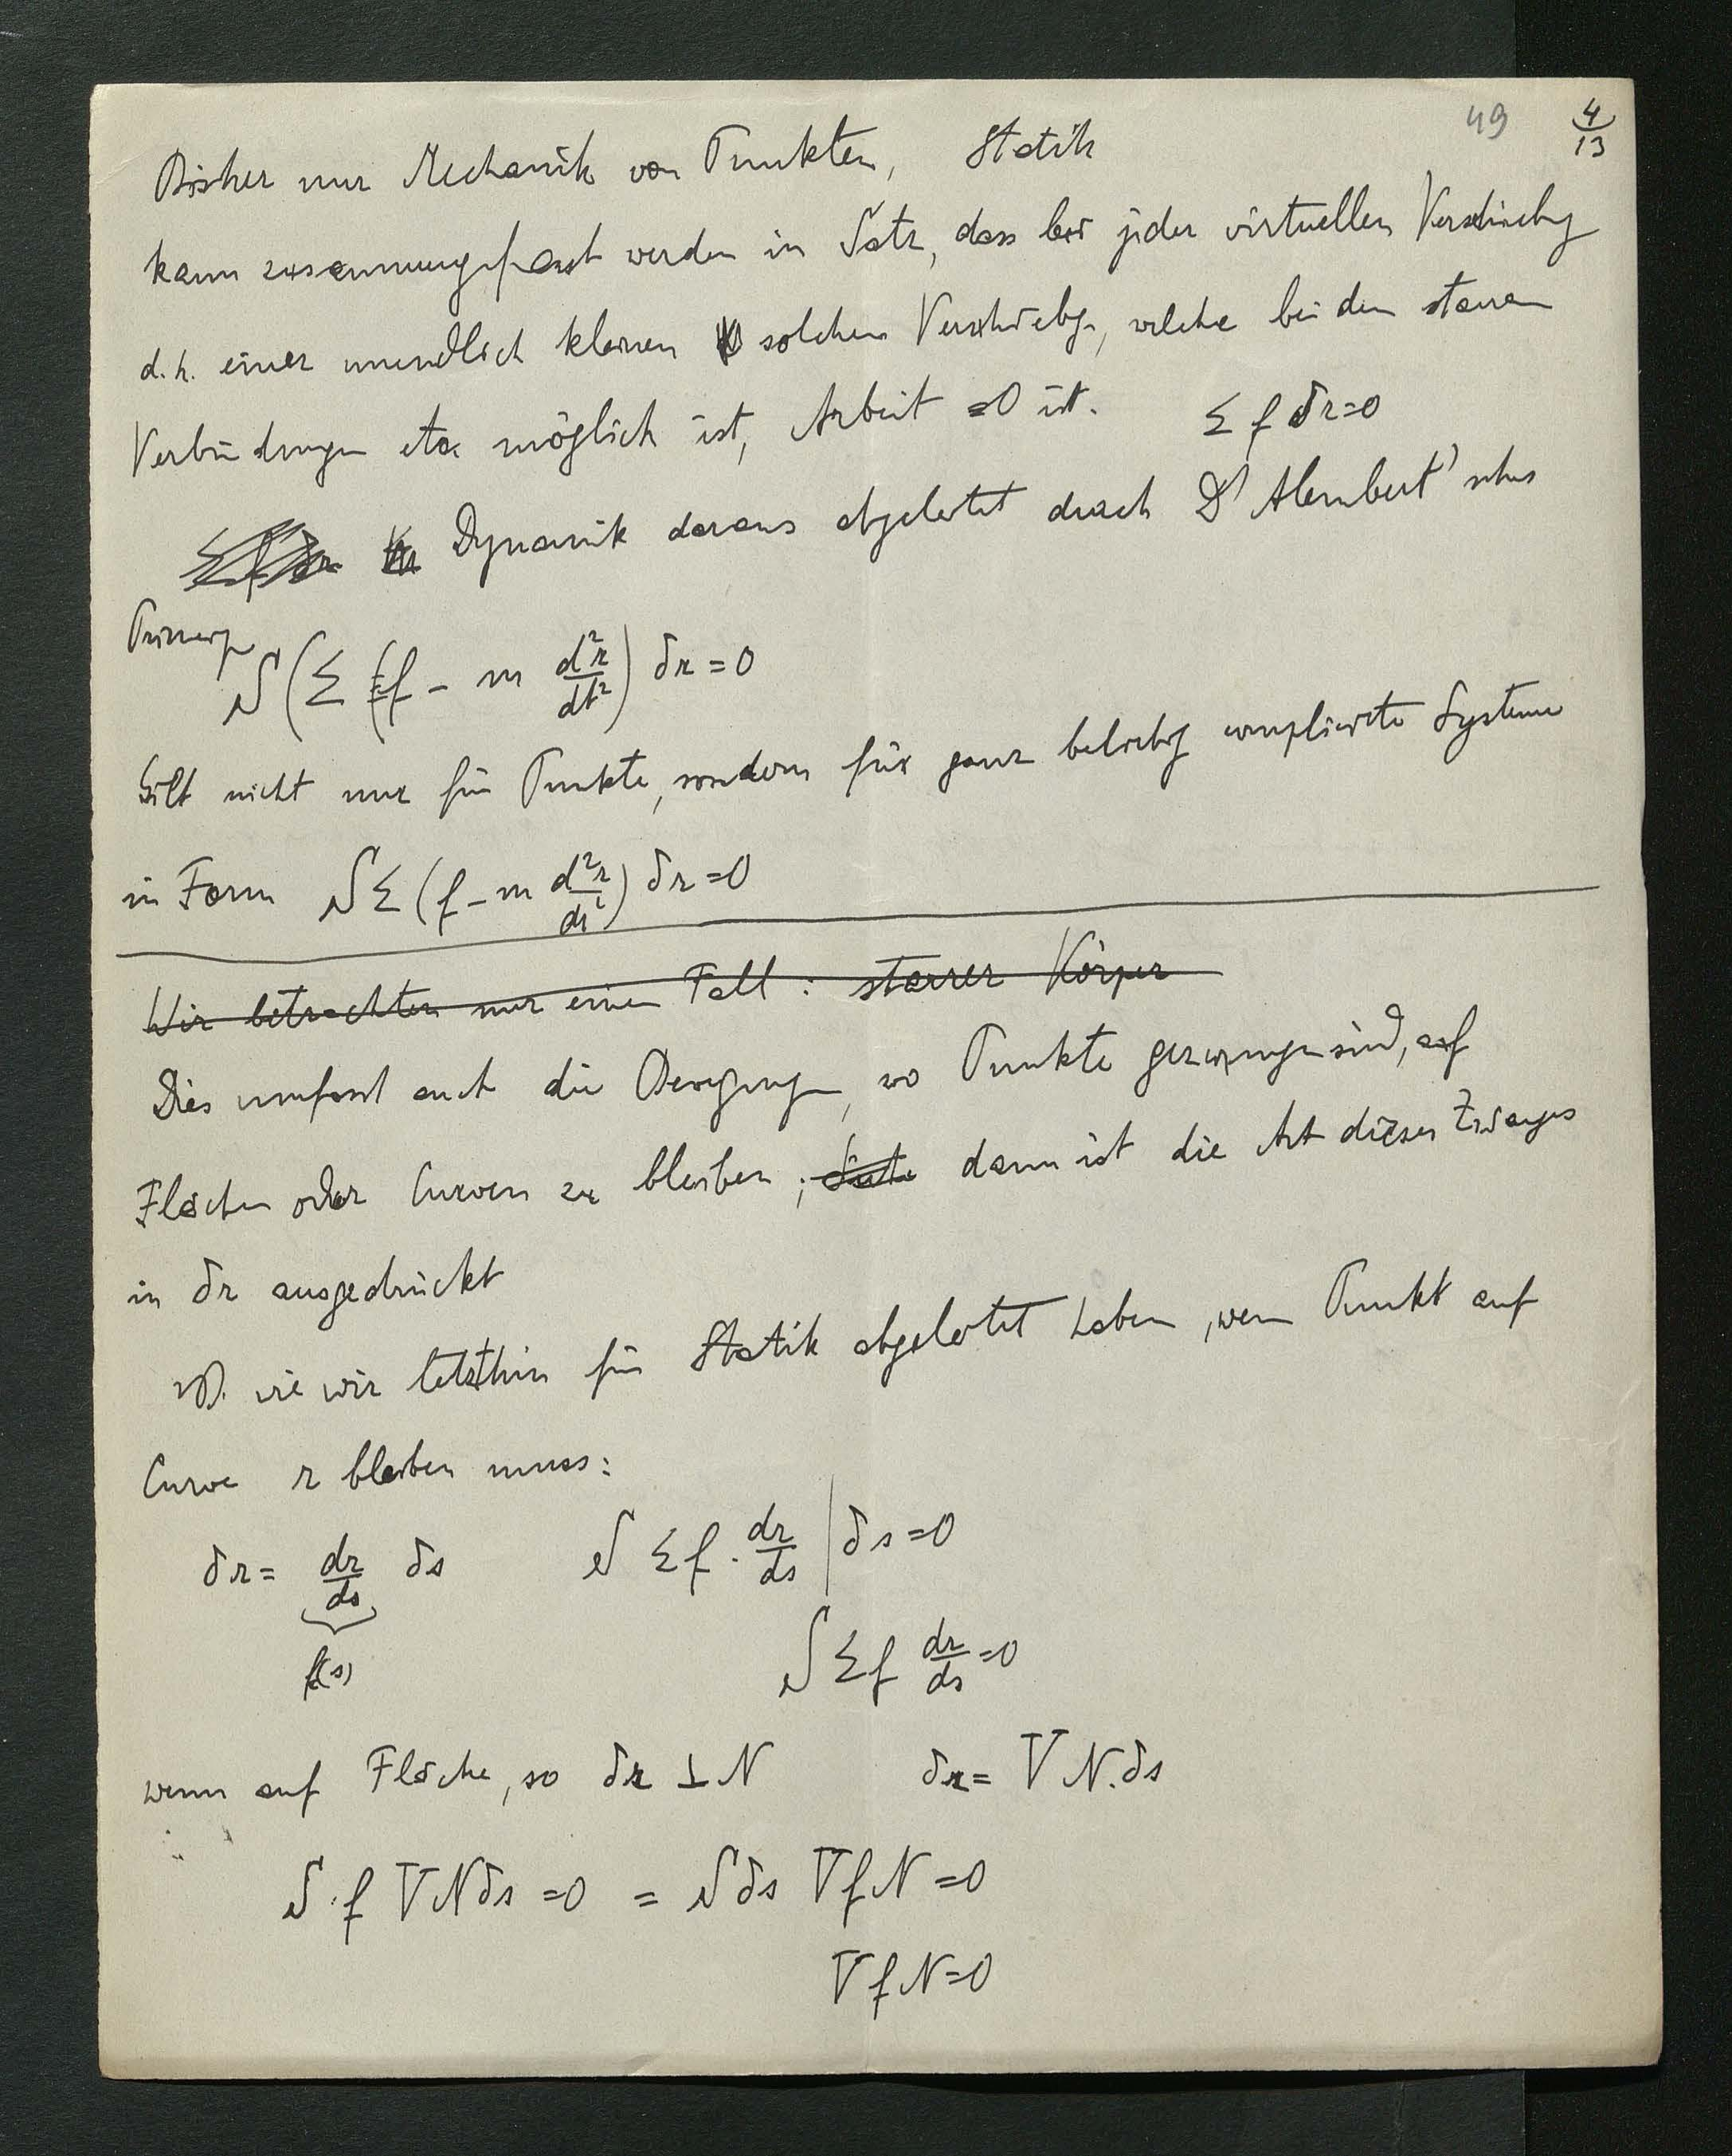 49 4/13
Bisher nur Mechanik von Punkten, Statik
kann zusammengefasst werden in Satz, dass bei jeder virtuellen Verschiebg
d. h. einer unendlich kleinen solchen Verschiebg, welche bei den starren
Verbindungen etc möglich ist, Arbeit =0 ist. Σ f δr=0
Dynamik daraus abgeleitet durch D'Alembert'sches
Prinzip
S(Σ (f - m d²r/dt²) δr = 0
Gilt nicht nur für Punkte, sondern für ganz beliebig complicirte Systeme
in Form SΣ (f - m d²r/dt²) δr = 0
Wir betrachten nur einen Fall : starrer Körper
Dies umfasst auch die Bewegungen, wo Punkte gezwungen sind, auf
Flächen oder Curven zu bleiben ; dann ist die Art dieses Zwanges
in δr ausgedrückt
zB. wie wir letzthin für Statik abgeleitet haben, wenn Punkt auf
Curve r bleiben muss:
δr = dr/ds δs S Σ f · dr/ds | δs = 0
f(s) S Σ f dr/ds = 0
wenn auf Fläche, so δr ⊥ N δr = V N. δs
S · f V N δs = 0 = S δs V f N = 0
V f N = 0